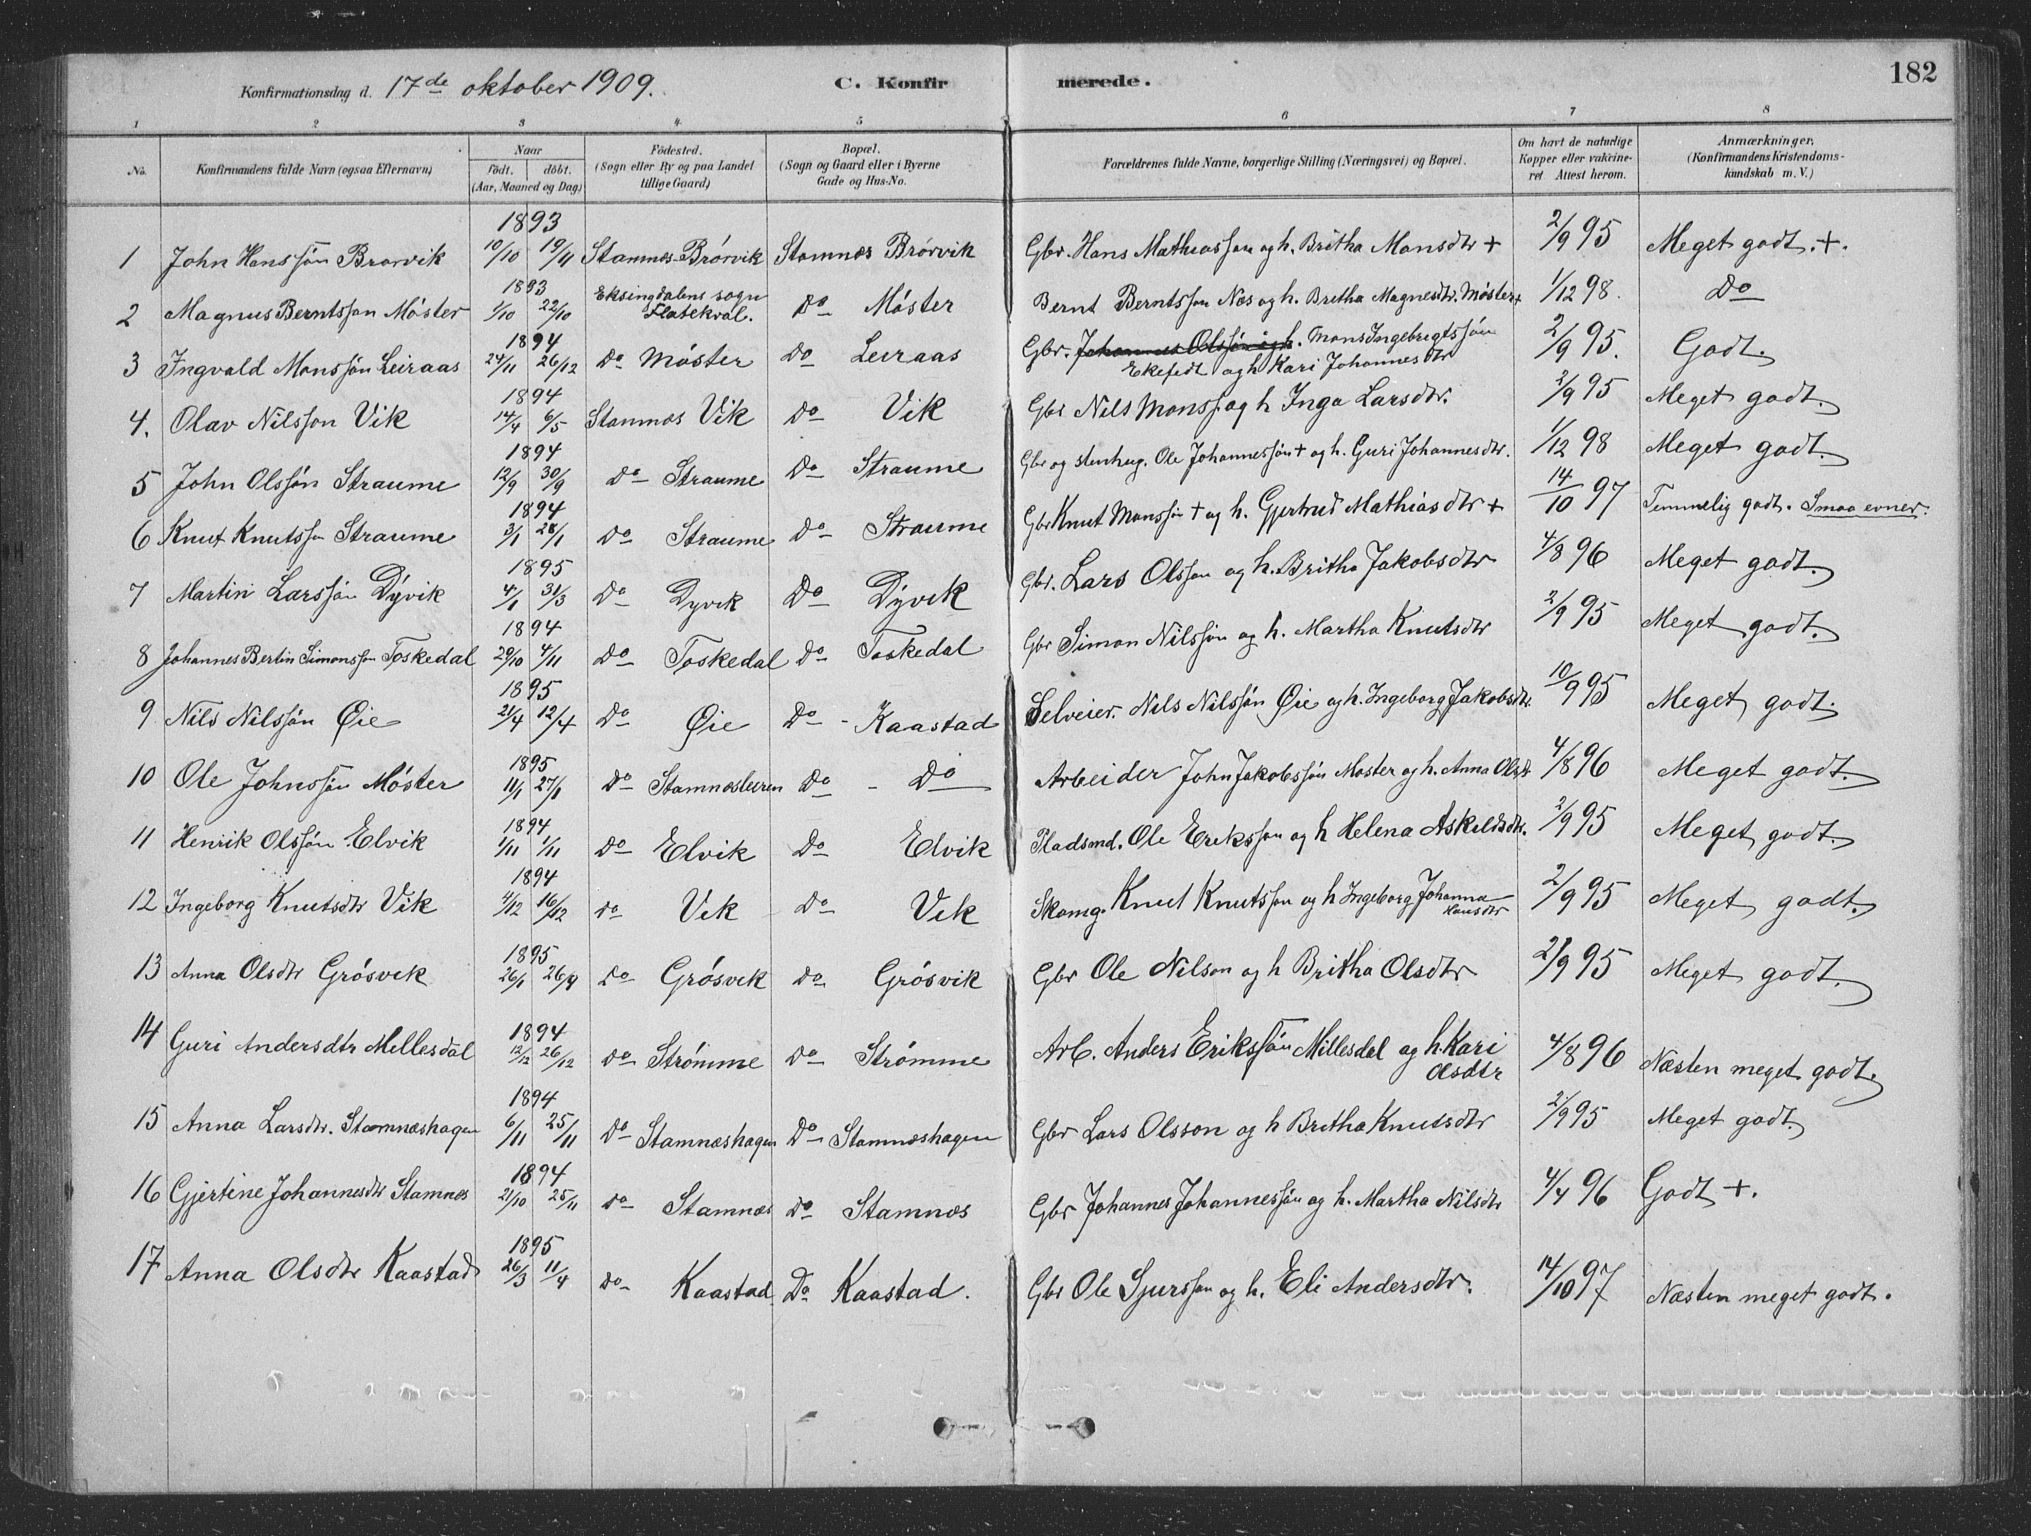 Konfirmationsdag d. 17de oktober 1909. C. Konfirmerede. 182
1 2 3 4 5 6 7 8
No. Konfirmandens fulde Navn (ogsaa Efternavn) Naar födt. döbt. (Aar, Maaned og Dag) Födested. (Sogn eller By og paa Landet tillige Gaard) Bopæl. (Sogn og Gaard eller i Byerne Gade og Hus-No. Forældrenes fulde Navne, borgerlige Stilling (Næringsvei) og Bopæl. Om havt de naturlige Kopper eller vakcineret Attest herom. Anmærkninger. (Konfirmandens Kristendomskundskab m. V.)
1 John Hansson Brørvik 1893 10/10 19/11 Stamnes-Brørvik Stamnæs Brørvik Gbr. Hans Mathiasson og h. Britha Monsdtr + 2/9 95 Meget godt. +.
2 Magnus Berntsson Møster 1893 1/10 22/10 Eksingdalens sogn Flatekval. Do Møster Bernt Berntsson Næs og h. Britha Magnesdtr. Møster + 1/12 98. Do
3 Ingvald Monssøn Leiraas 1894 24/11 26/12 Do Møster Do Leiraas Gbr. Johannes Olssøn og h. Mons Ingebrigtssøn Ekefedt og h Kari Johannesdtr 2/9 95. Godt.
4. Olav Nilsson Vik 1894 14/4 6/5 Stamnæs Vik Do Vik Gbr Nils Monss. og h Inga Larsdtr. 2/9 95 Meget godt.
5 John Olssøn Straume 1894 12/9 30/9 Do Straume Do Straume Gbr og stenhug. Ole Johannessøn + og h. Guri Johannesdtr. 1/12 98 Meget godt.
6 Knut Knutsson Straume 1894 3/1 28/1 Do Straume Do Straume Gbr Knut Monssøn + og h. Gjertrud Mathiasdtr + 14/10 97 Temmelig godt. Smaa evner.
7 Martin Larssøn Dyvik 1895 4/1 31/3 Do Dyvik Do Dyvik Gbr. Lars Olsson og h. Britha Jakobsdtr 4/8 96 Meget godt.
8 Johannes Bertin Simonsson Toskedal 1894 29/10 4/11 Do Toskedal Do Toskedal Gbr Simon Nilssøn og h. Martha Knutsdtr 2/9 95 Meget godt.
9 Nils Nilssøn Øie 1895 21/4 12/4 Do Øie Do - Kaastad Selveier. Nils Nilssøn Øie og h. Ingeborg Jakobsdtr. 10/9 95 Meget godt.
10 Ole Johnssøn Møster 1895 11/1 27/1 Do Stamnæsleiren Do - Do Arbeider John Jakobssøn Møster og h. Anna Olsdt 4/8 96 Meget godt.
11 Henrik Olssøn Elvik 1894 1/11 1/11 Do Elvik Do Elvik Pladsmd. Ole Eriksson og h Helena Askildsdtr. 2/9 95 Meget godt.
12 Ingeborg Knutsdtr Vik 1894 4/12 16/12 do Vik Do Vik Skomg. Knut Knutsson og h Ingeborg Johanna Hansdtr 2/9 95 Meget godt.
13 Anna Olsdtr Grøsvik 1895 26/1 26/4 Do Grøsvik Do Grøsvik Gbr Ole Nilson og h Britha Olsdtr 2/9 95 Meget godt.
14 Guri Andersdtr Mellesdal 1894 12/12 26/12 Do Strømme Do Strømme Arb. Anders Erikssøn Millesdal og h. Kari Olsdtr 4/8 96 Næsten meget godt.
15 Anna Larsdtr. Stamnæshagen 1894 6/11 25/11 Do Stamnæshagen Do Stamnæshagen Gbr Lars Olsson og h Britha Knutsdtr 2/9 95 Meget godt.
16 Gjertine Johannesdtr Stamnæs 1894 21/10 25/11 Do Stamnæs Do Stamnæs Gbr Johannes Johannessøn og h. Martha Nilsdtr 4/4 96 Godt +.
17 Anna Olsdtr Kaastad 1895 26/3 11/4 Do Kaastad Do Kaastad. Gbr Ole Sjursson og h. Eli Andersdtr. 14/10 97 Næsten meget godt.